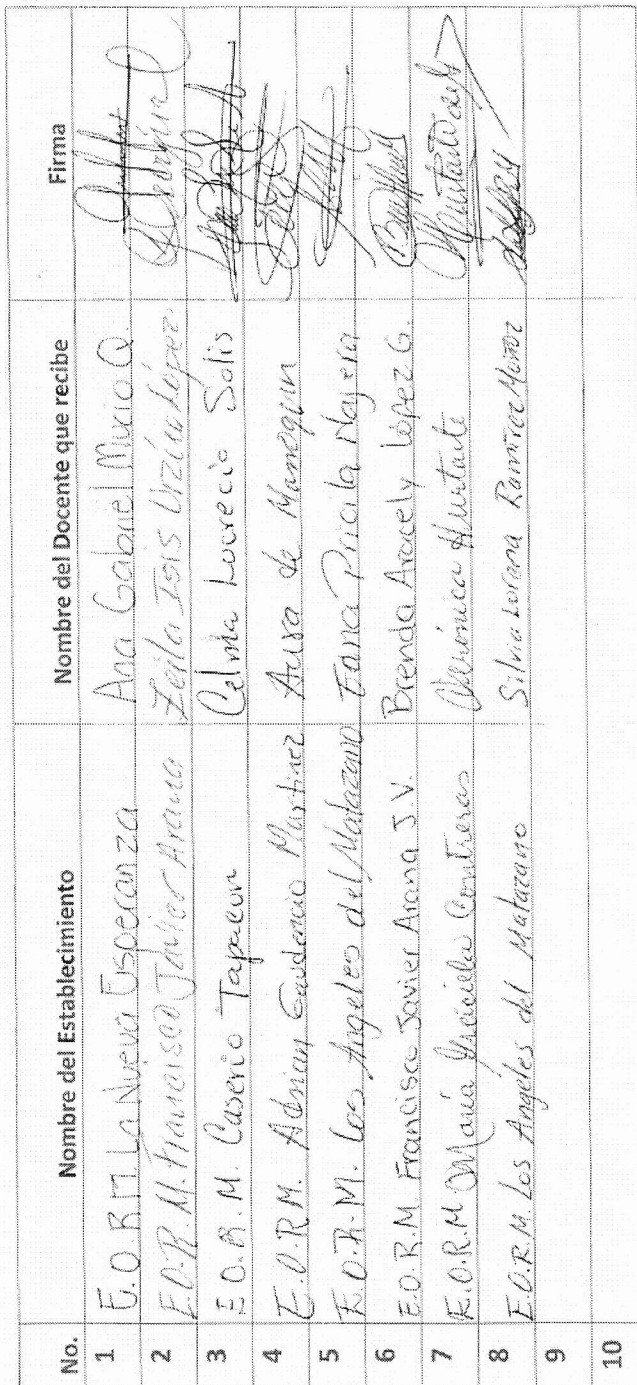 No. Nombre del Establecimiento Nombre del Docente que recibe Firma
1 E.O.R.M. La Nueva Esperanza Ana Gabriel Mucio Q.
2 E.O.R.M. Francisco Javier Arana Leila Isis Urzúa López
3 E.O.R.M. Caserio Celma Lucrecia Solis
4 E.O.R.M. Adrian Gaudencio Martinez Aura de
5 E.O.R.M. Los Angeles del Matazano Pricila Najera
6 E.O.R.M. Francisco Javier Arana J.V. Brenda Aracely López G.
7 E.O.R.M María Graciela Contreras Verónica Hurtarte
8 E.O.R.M. Los Angeles del Matazano Silvia Lorena Ramirez Muñoz
9
10